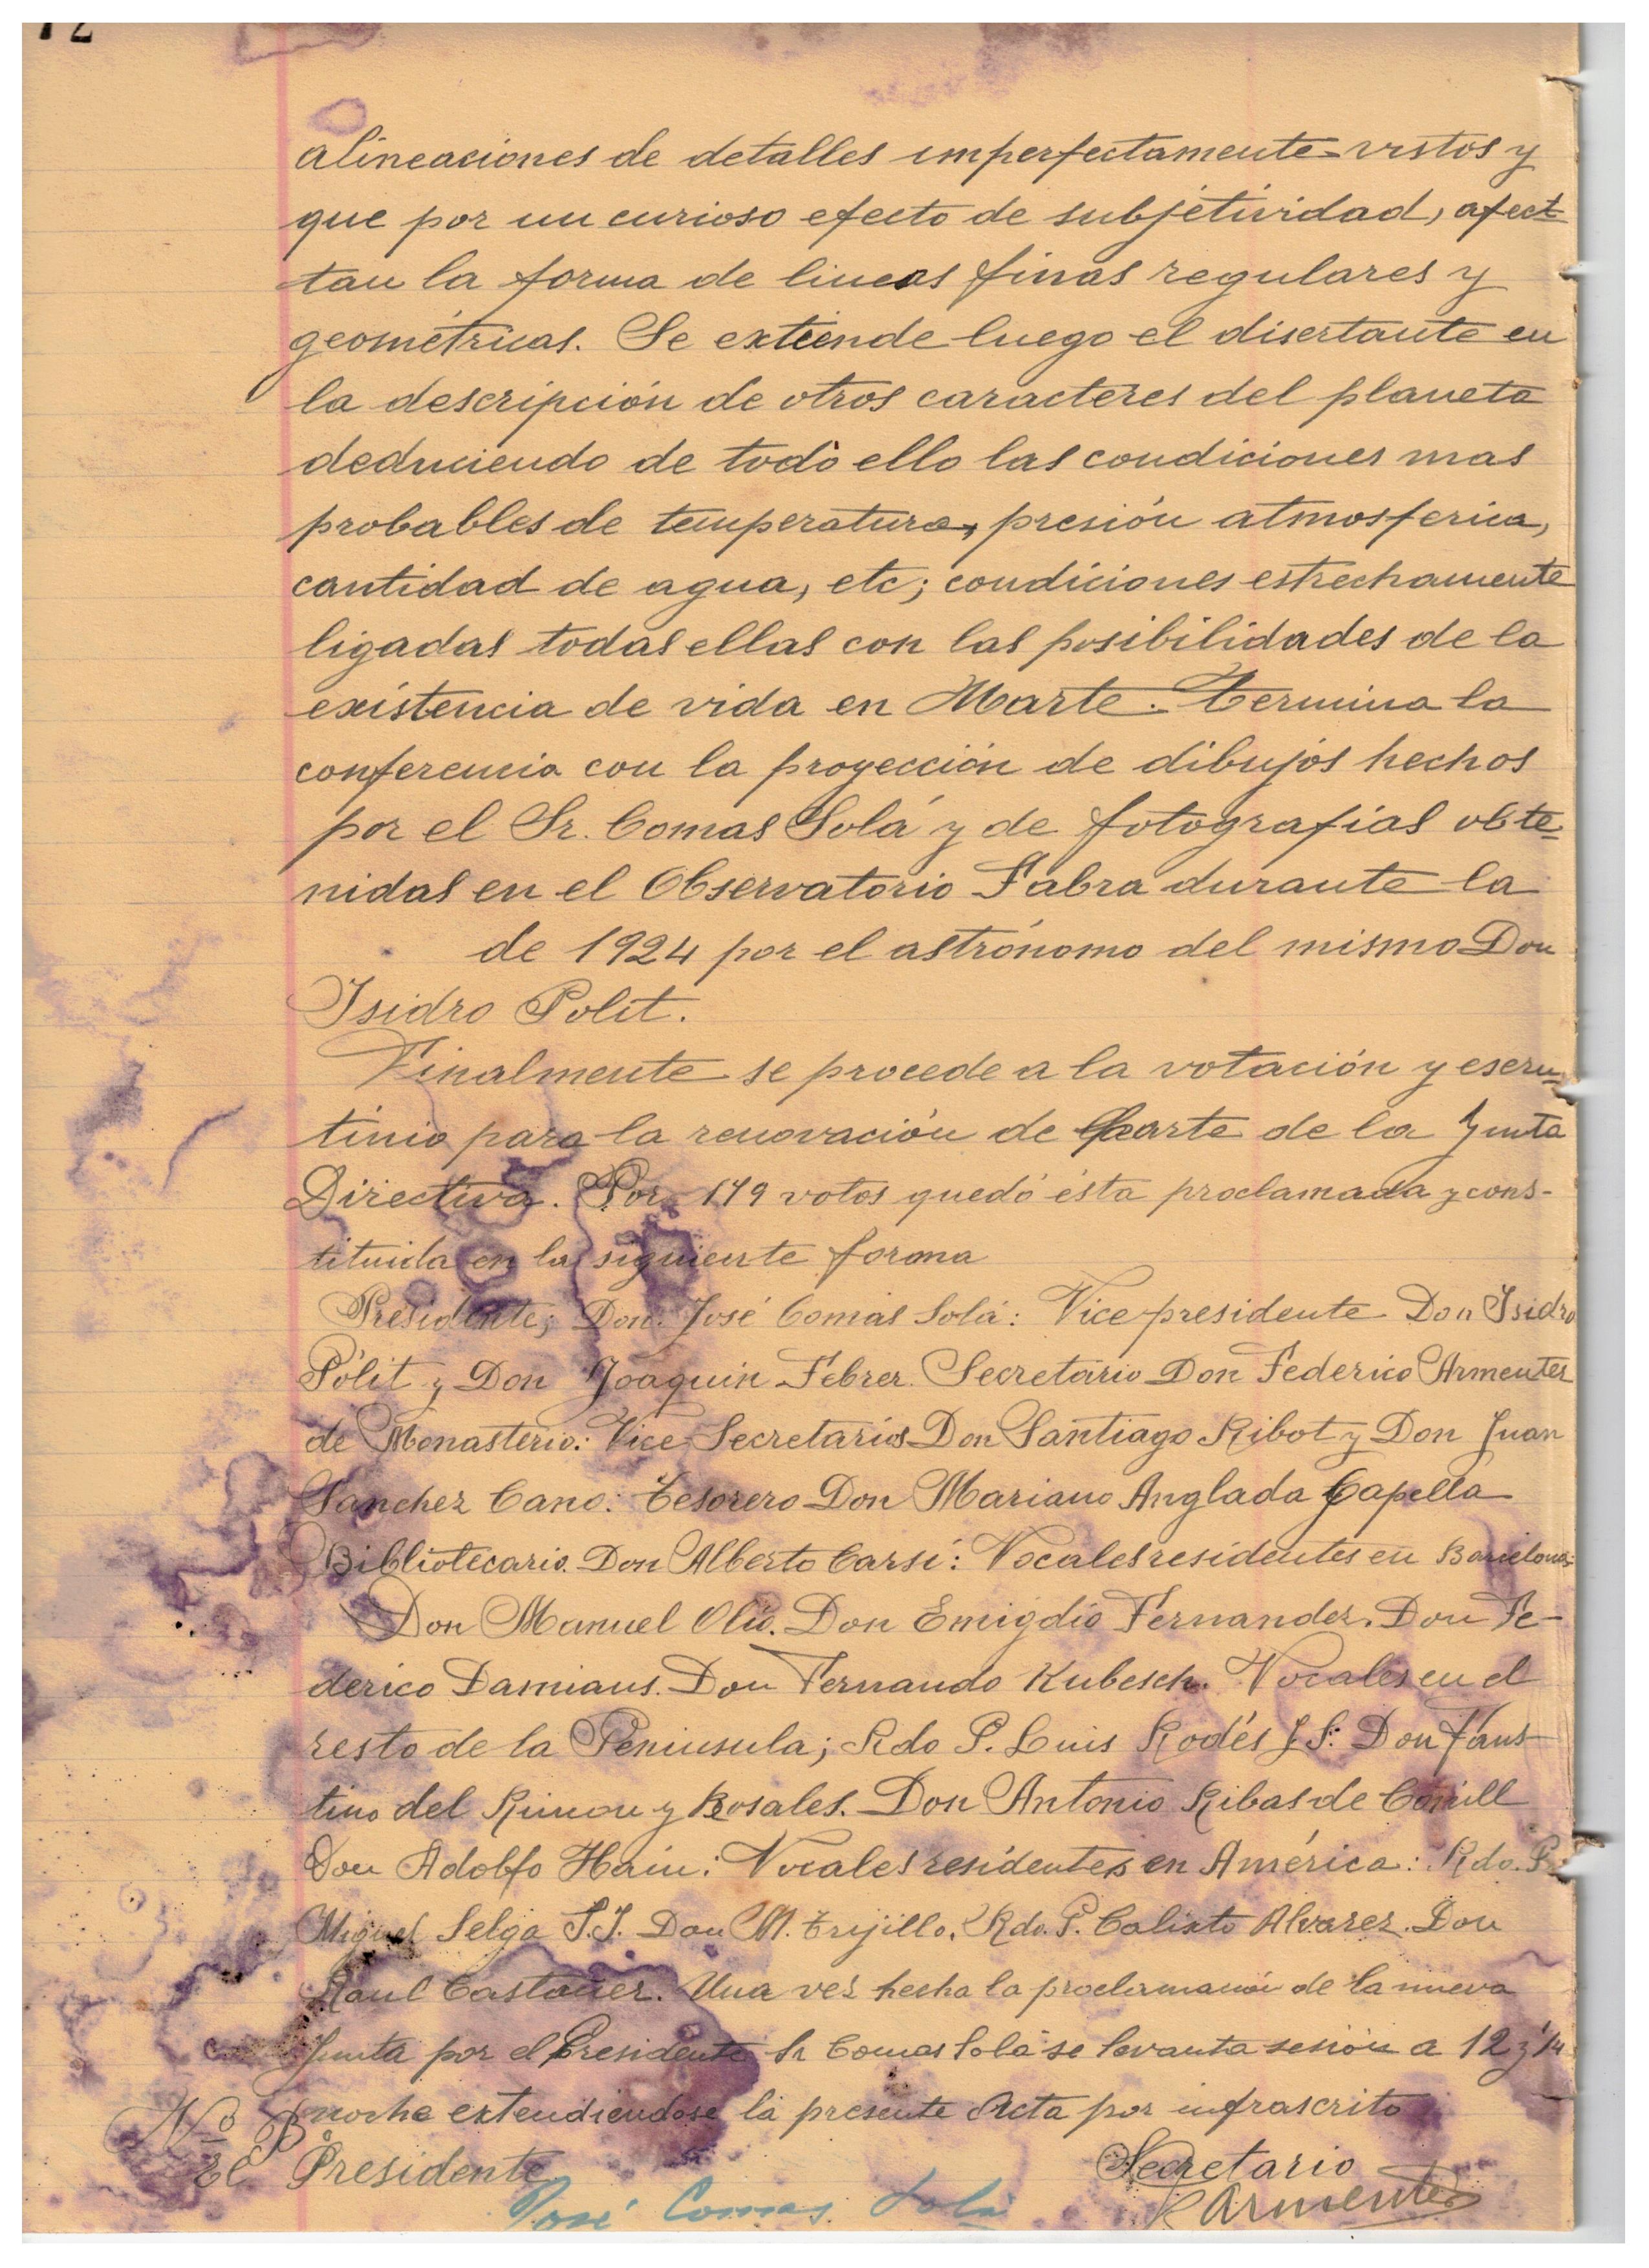 72
alineaciones de detalles imperfectamente vistos y
que por un curioso efecto de subjetividad, afect-
tan la forma de lineas finas regulares y
geométricas. Se extiende luego el disertante en
la descripción de otros caracteres del planeta
deduciendo de todo ello las condiciones mas
probables de temperatura, presión atmosferica,
cantidad de agua, etc; condiciones estrechamente
ligadas todas ellas con las posibilidades de la
existencia de vida en Marte. Termina la
conferencia con la proyección de dibujos hechos
por el Sr. Comas Solá y de fotografias obte-
nidas en el Observatorio Fabra durante la
de 1924 por el astrónomo del mismo Don
Isidro Polit.
Finalmente se procede a la votación y escru-
tinio para la renovación de parte de la Junta
Directiva. Por 179 votos quedó ésta proclamada y cons-
tituida en la siguiente forma
Presidente; Don José Comas Solá: Vice presidente Don Isidro
Pólit y Don Joaquin Febrer. Secretario Don Federico Armenter
de Monasterio: Vice Secretarios Don Santiago Ribot y Don Juan
Sanchez Cano: Tesorero Don Mariano Anglada Capella
Bibliotecario. Don Alberto Carsi: Vocales residentes en Barcelona:
Don Manuel Olió. Don Emigdio Fernandez. Don Fe-
derico Damians. Don Fernando Kubesch. Vocales en el
resto de la Peninsula; Rdo P. Luis Rodés J.S: Don Faus-
tino del Rincon y Rosales. Don Antonio Ribas de Conill
Don Adolfo Hain: Vocales residentes en América: Rdo. P.
Miguel Selga S.J. Don M. Trujillo. Rdo. P. Calixto Alvarez. Don
Raul Castañer. Una vez hecha la proclamación de la nueva
Junta por el Presidente Sr Comas Solá se levanta sesión a 12 y 1/4
noche extendiendose la presente Acta por infrascrito
Nº Bº
El Presidente Secretario
José Comas Solá Armenter